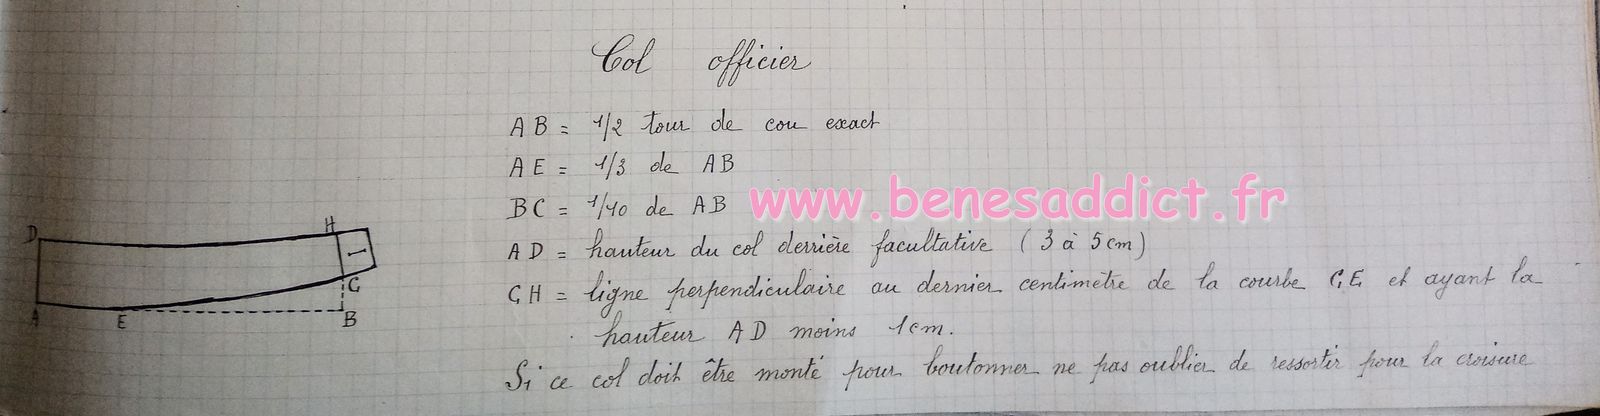 Col officier
AB = 1/2 tour de cou exact
AE = 1/3 de AB
BC = 1/10 de AB
www.benesaddict.fr
AD = hauteur du col derrière facultative (3 à 5cm)
CH = ligne perpendiculaire au dernier centimètre de la courbe CE et ayant la
hauteur AD moins 1cm.
Si ce col doit être monté pour boutonner ne pas oublier de ressortir pour la croisure
D
H
C
A
E
B